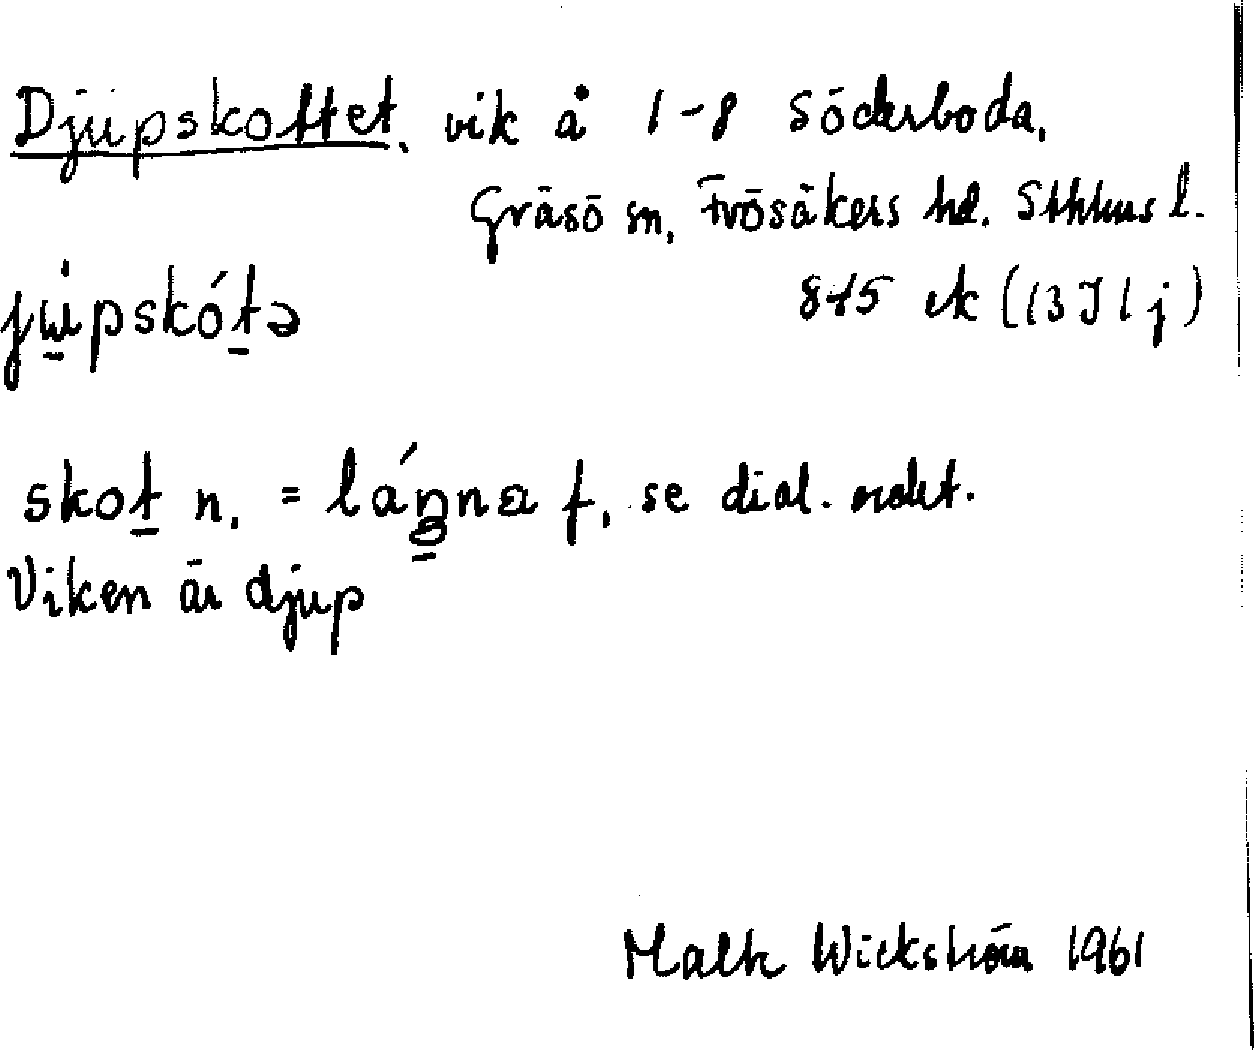 Djupskottet, vik å 1-8 Söderboda,
Gräsö sn, Frösåkers hd. Sthlms l.
845 ek (13 I 1 j)
jɯ̀pskótə
skot n. = láŋna f, se dial. ordet.
Viken är djup
Malte Wickström 1961